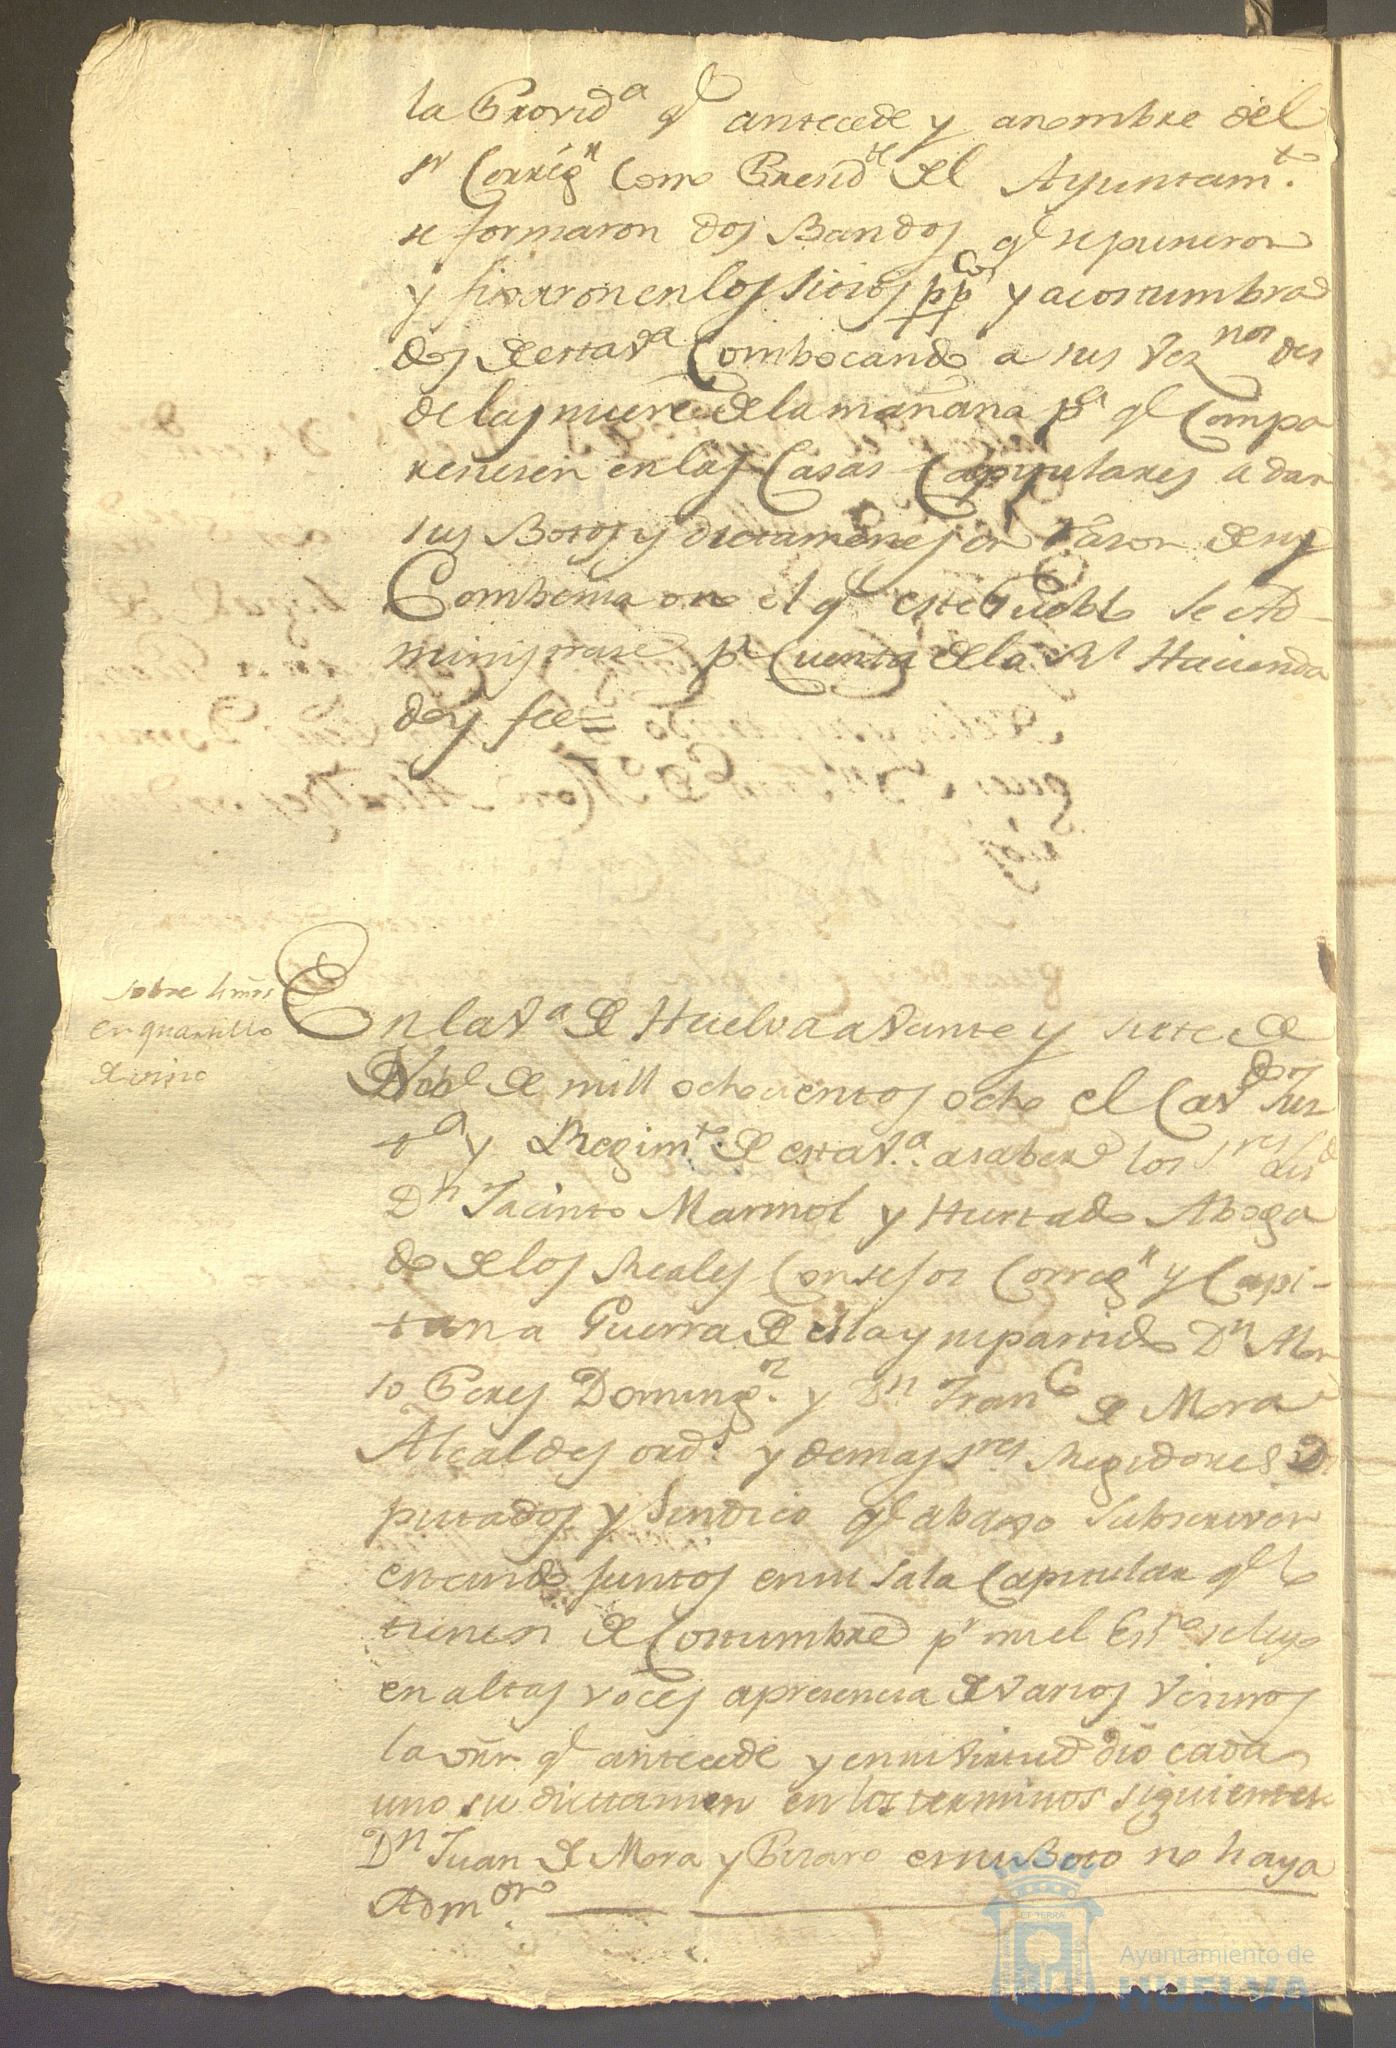 la Provid.a q.e antecede y anombre del
S.r Correg.r Como Presid.te del Ayuntam.to
se formaron dos Bandos q.e sepusieron
y fixaron en los sitios pp.cos y acostumbra
dos de esta V.a Combocando a sus Vez.nos des
de las nueve de la mañana p.a q.e Compa
reciesen en las Casas Capitulares a dar
sus Botos y dictamenes en razon de
Combenia o no el q.e este Pueblo se Ad-
ministrase p.r Cuenta de la R.l Hacienda
doy fee=
sobre
en quartillo
de vino
En la V.a de Huelva a Veinte y siete de
Nobre de mill ochocientos ocho el Cav.do Jus
t.a y Regim.to de esta V.a asaber los S.res Lis.do
D.n Jacinto Marmol y Hurtado Aboga
do de los Reales Consejos Correg.r y Capi-
tan a Guerra de ella y su partido D.n Alon
so Peres Doming.z y D.n Fran.co de Mora
Alcaldes ord.s y demas S.res Regidores D
putados y Sindico q.e abaxo subscriven
estando juntos en su sala Capitular q.e lo
tienen de Costumbre p.r mi el Ess.no se leyo
en altas voces a presencia de Varios Vecinos
la orn q.e antecede y en su virtud dio cada
uno su dictamen en los terminos siguientes
D.n Juan de Mora y Pizaro es su Boto no haya
Adm.on
Ayuntamiento de
HUELVA